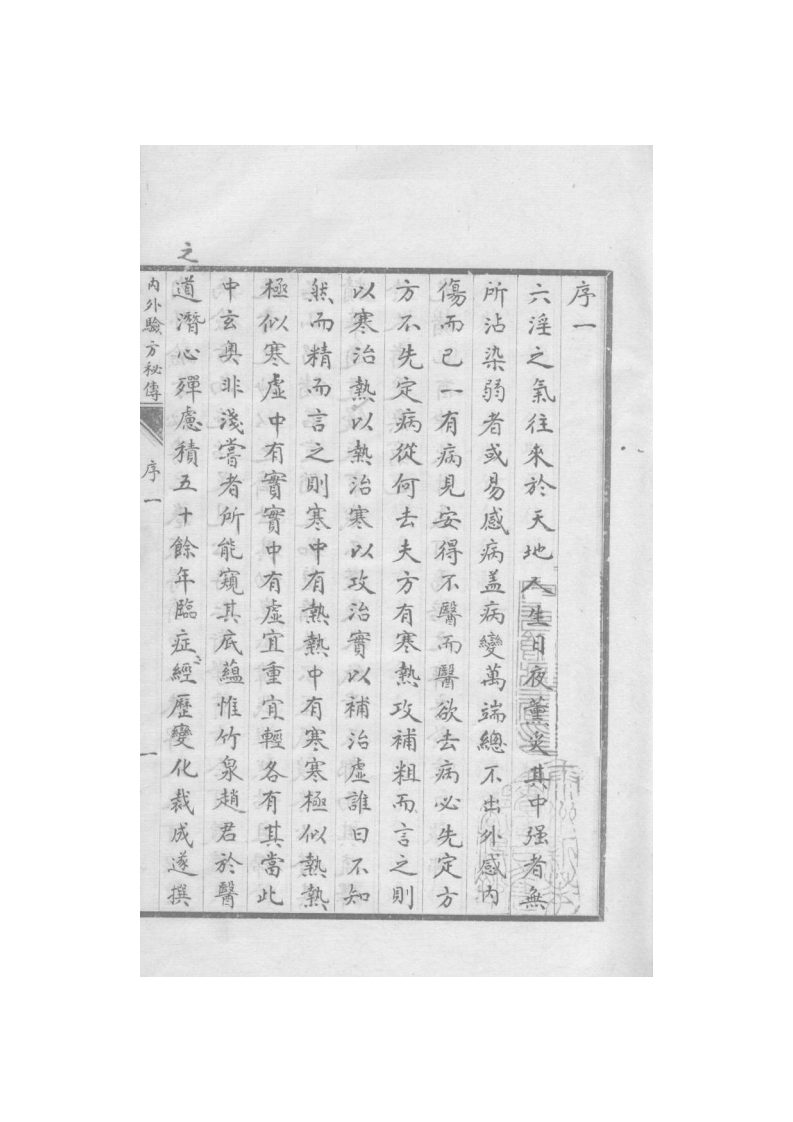 序一
六淫之氣往來於天地人生日夜薰炙其中强者無
所沾染弱者或易感病盖病變萬端總不出外感內
傷而已一有病見安得不醫而醫欲去病必先定方
方不先定病從何去夫方有寒熱攻補粗而言之則
以寒治熱以熱治寒以攻治實以補治虛誰曰不知
然而精而言之則寒中有熱熱中有寒寒極似熱熱
極似寒虛中有實實中有虛宜重宜輕各有其當此
中玄奥非淺嘗者所能窺其底蘊惟竹泉趙君於醫
之
道潛心殫慮積五十餘年臨症經歷變化裁成遂撰
內外驗方秘傳
序一
一